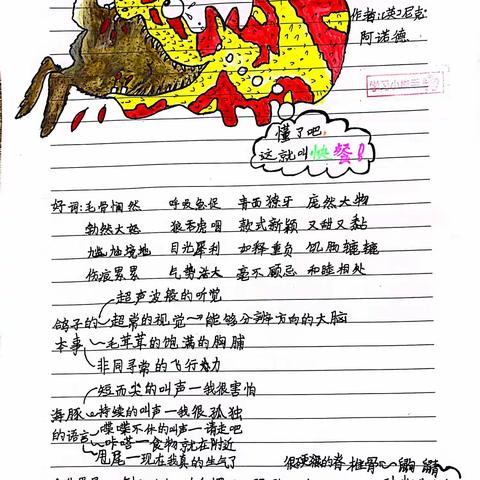 作者:(英)尼克
阿诺德
懂了吧
这就叫快餐!
好词:毛骨悚然 呼吸急促 青面獠牙 庞然大物
勃然大怒 狼吞虎咽 款式新颖 又甜又黏
尴尬境地 目光犀利 如释重负 饥肠辘辘
伤痕累累 气势浩大 毫不顾忌 和睦相处
超声波般的听觉
鸽子的 超常的视觉→能够分辨方向的大脑
本事 毛茸茸的饱满的胸脯
非同寻常的飞行能力
短而尖的叫声一我很害怕
海豚 持续的叫声一我很孤独
的语言 喋喋不休的叫声一请走吧
咔嗒一食物就在附近
甩尾一现在我真的生气了 很硬强的脊椎骨